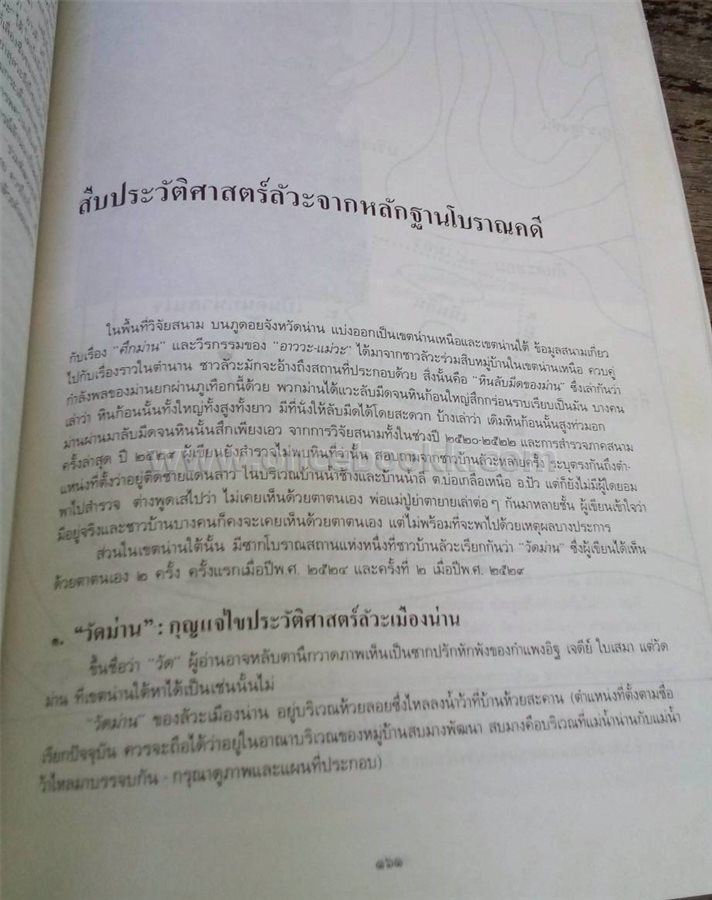 สืบประวัติศาสตร์ลัวะจากหลักฐานโบราณคดี
ในพื้นที่วิจัยสนาม บนภูดอยจังหวัดน่าน แบ่งออกเป็นเขตน่านเหนือและเขตน่านใต้ ข้อมูลสนามเกี่ยว
กับเรื่อง "ศึกม่าน" และวีรกรรมของ "อาววะ-แม่วะ" ได้มาจากชาวลัวะร่วมสิบหมู่บ้านในเขตน่านเหนือ ควบคู่
ไปกับเรื่องราวในตำนาน ชาวลัวะมักจะอ้างถึงสถานที่ประกอบด้วย สิ่งนั้นคือ "หินลับมีดของม่าน" ซึ่งเล่ากันว่า
กำลังพลของม่านยกผ่านภูเทือกนี้ด้วย พวกม่านได้แวะลับมีดจนหินก้อนใหญ่สึกกร่อนราบเรียบเป็นมัน บางคน
เล่าว่า หินก้อนนั้นทั้งใหญ่ทั้งสูงทั้งยาว มีที่นั่งให้ลับมีดได้โดยสะดวก บ้างเล่าว่า เดิมหินก้อนนั้นสูงท่วมอก
ม่านผ่านมาลับมีดจนหินนั้นสึกเพียงเอว จากการวิจัยสนามทั้งในช่วงปี ๒๕๒๐-๒๕๒๒ และการสำรวจภาคสนาม
ครั้งล่าสุด ปี ๒๕๒๙ ผู้เขียนยังสำรวจไม่พบหินที่ว่านั้น สอบถามจากชาวบ้านลัวะหลายครั้ง ระบุตรงกันถึงตำ-
แหน่งที่ตั้งว่าอยู่ติดชายแดนลาว ในบริเวณบ้านน้ำช้างและบ้านน้ำลี ต.บ่อเกลือเหนือ อ.ปัว แต่ก็ยังไม่มีผู้ใดยอม
พาไปสำรวจ ต่างพูดเสไปว่า ไม่เคยเห็นด้วยตาตนเอง พ่อแม่ปู่ย่าตายายเล่าต่อๆ กันมาหลายชั้น ผู้เขียนเข้าใจว่า
มีอยู่จริงและชาวบ้านบางคนก็คงจะเคยเห็นด้วยตาตนเอง แต่ไม่พร้อมที่จะพาไปด้วยเหตุผลบางประการ
ส่วนในเขตน่านใต้นั้น มีซากโบราณสถานแห่งหนึ่งที่ชาวบ้านลัวะเรียกกันว่า "วัดม่าน" ซึ่งผู้เขียนได้เห็น
ด้วยตาตนเอง ๒ ครั้ง ครั้งแรกเมื่อปีพ.ศ. ๒๕๒๔ และครั้งที่ ๒ เมื่อปีพ.ศ. ๒๕๒๙
๑. "วัดม่าน" : กุญแจไขประวัติศาสตร์ลัวะเมืองน่าน
ขึ้นชื่อว่า "วัด" ผู้อ่านอาจหลับตานึกวาดภาพเห็นเป็นซากปรักหักพังของกำแพงอิฐ เจดีย์ ใบเสมา แต่วัด
ม่าน ที่เขตน่านใต้หาได้เป็นเช่นนั้นไม่
"วัดม่าน" ของลัวะเมืองน่าน อยู่บริเวณห้วยลอยซึ่งไหลลงน้ำว้าที่บ้านห้วยสะคาน (ตำแหน่งที่ตั้งตามชื่อ
เรียกปัจจุบัน ควรจะถือได้ว่าอยู่ในอาณาบริเวณของหมู่บ้านสบมางพัฒนา สบมางคือบริเวณที่แม่น้ำน่านกับแม่น้ำ
ว้าไหลมาบรรจบกัน - กรุณาดูภาพและแผนที่ประกอบ)
๑๖๑